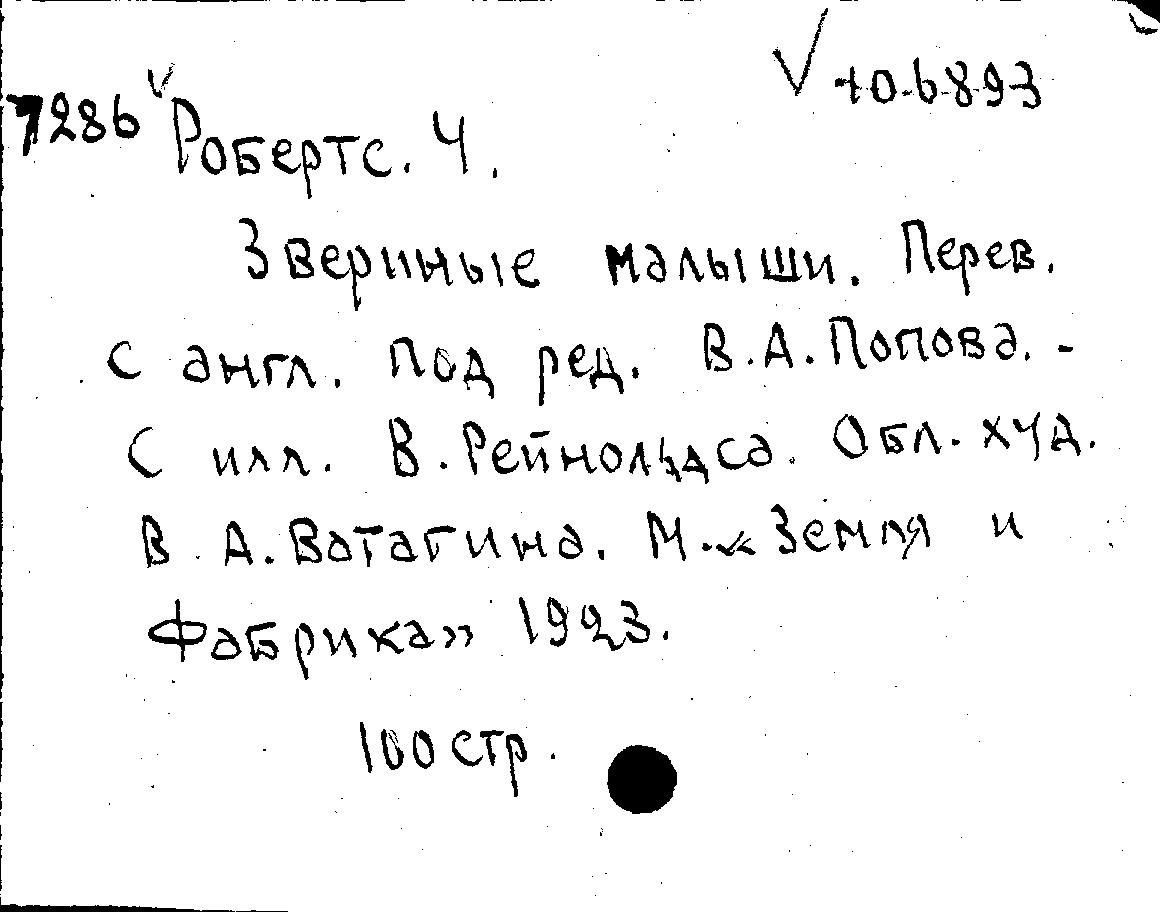 √ 10-6893
7286 √ Робертс. Ч.
Звериные малыши. Перев.
с англ. Под ред. В.А.Попова. -
С илл. В.Рейнольдса. Обл. худ.
В.А.Ватагина. М. «Земля и
Фабрика» 1923.
100 стр.